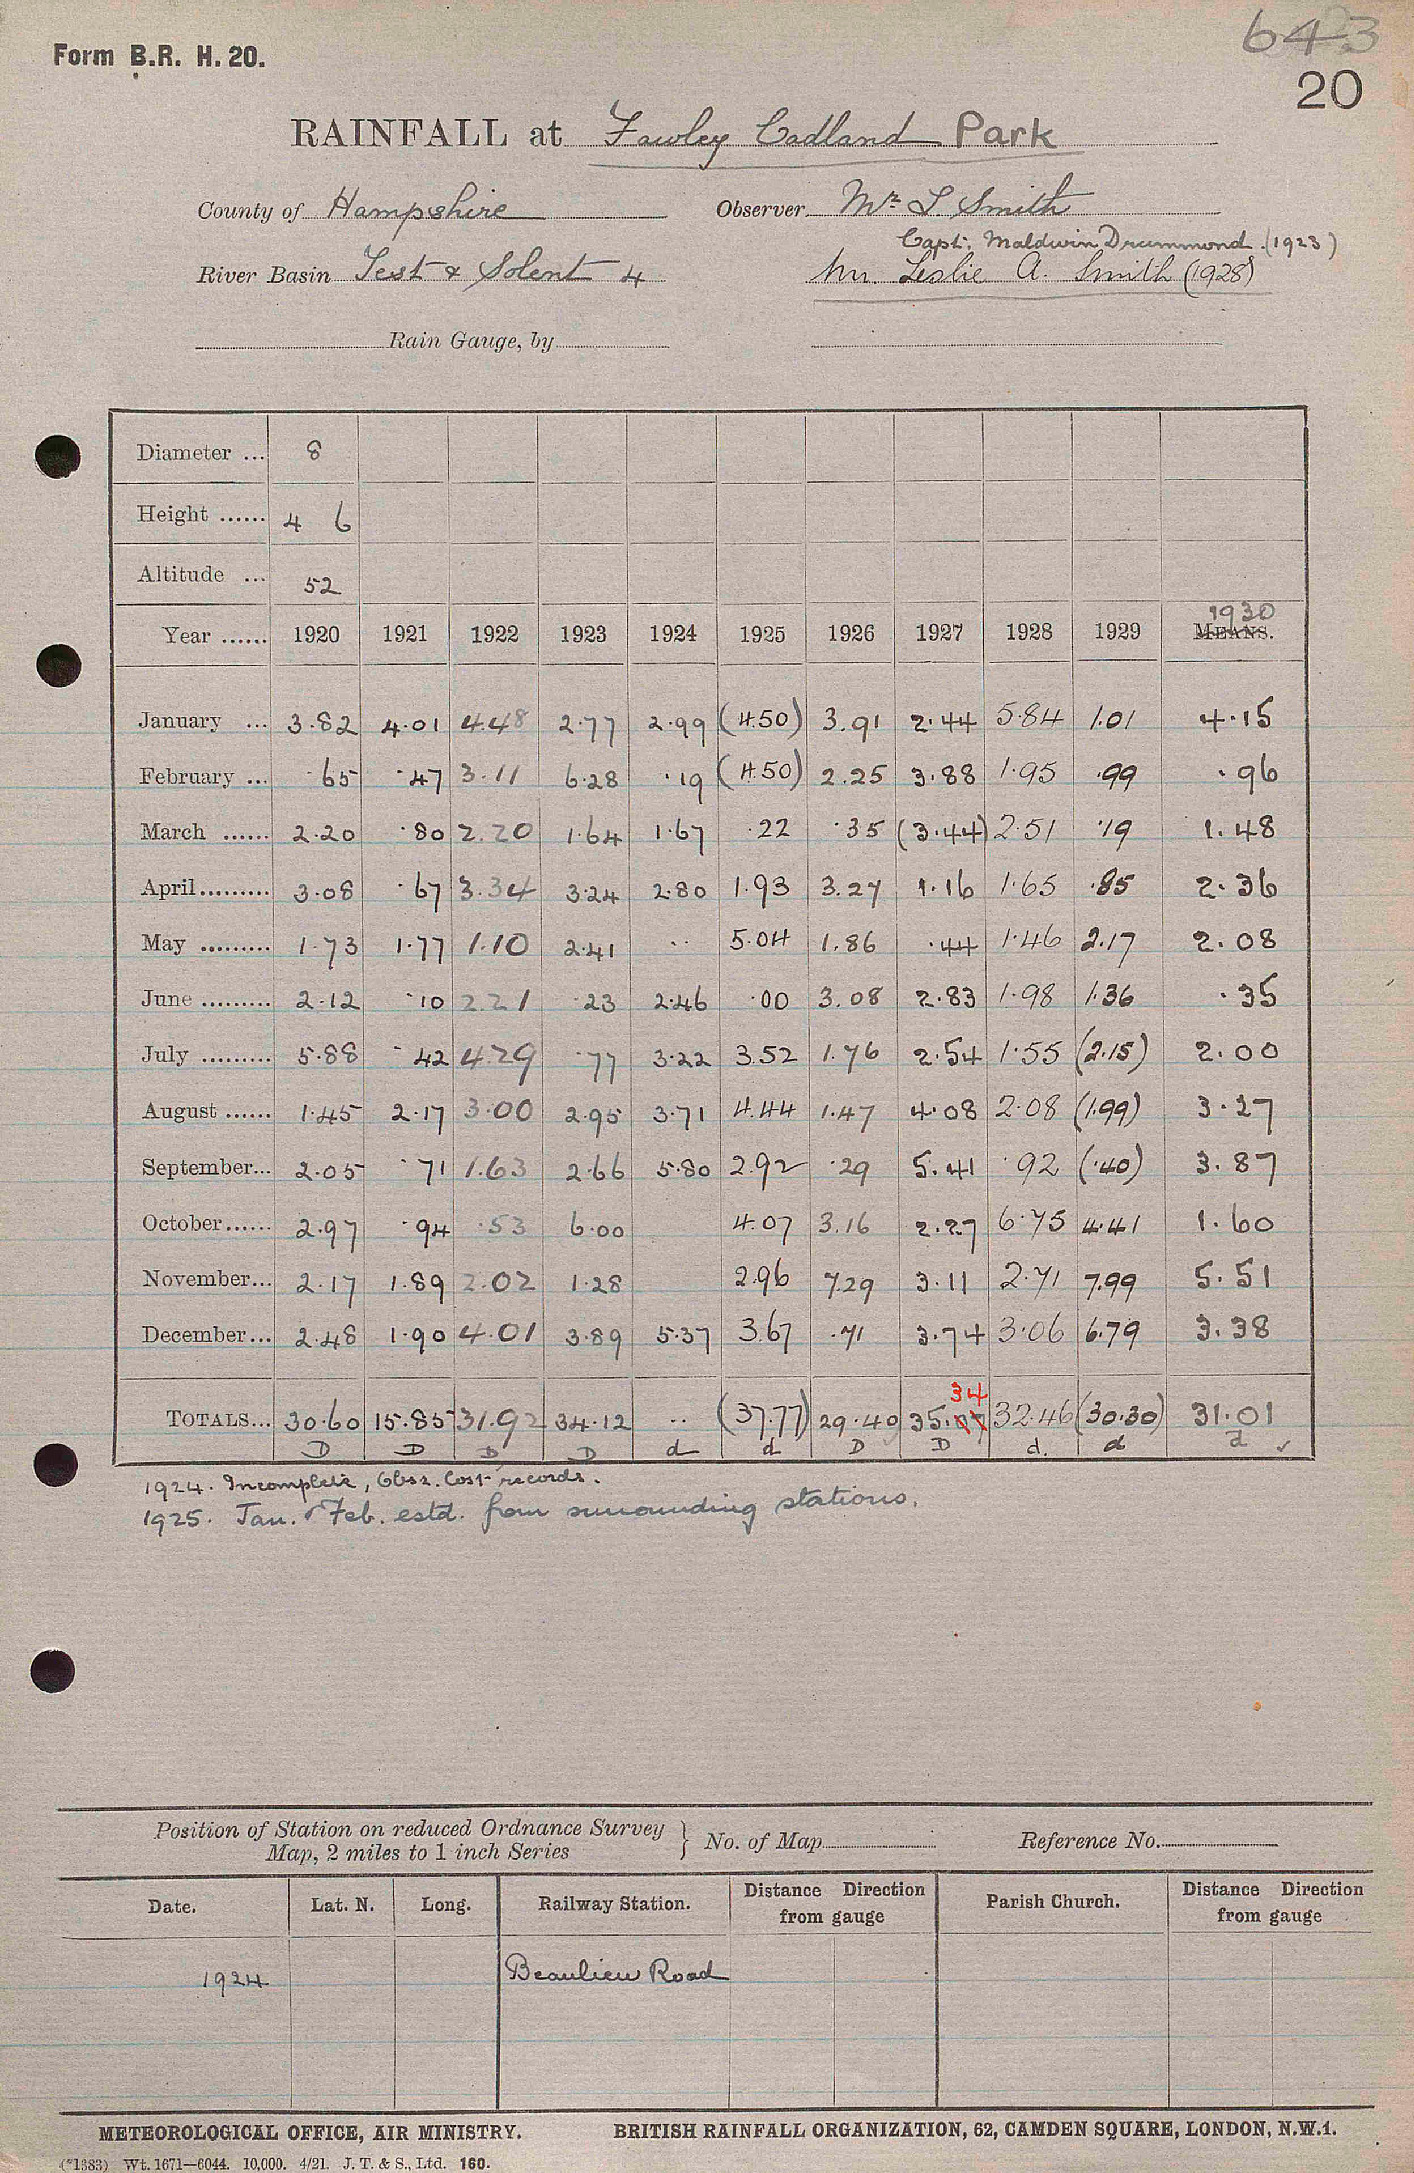 6423
Form B.R. H. 20.
20
RAINFALL at Fawley Cadland Park
County of Hampshire Observer Mr L Smith
Capt. Maldwin Drummond (1923)
River Basin Test & Solent 4 Mr. Leslie A. Smith (1928)
Rain Gauge, by
Diameter ... 8
Height ...... 4 6
Altitude ... 52
1930
Year ...... 1920 1921 1922 1923 1924 1925 1926 1927 1928 1929 MEANS.
January ... 3.82 4.01 4.48 2.77 2.99 (4.50) 3.91 2.44 5.84 1.01 4.15
February ... .65 .47 3.11 6.28 .19 (4.50) 2.25 3.88 1.95 .99 .96
March ...... 2.20 .80 2.20 1.64 1.67 .22 .35 (3.44) 2.51 .19 1.48
April ......... 3.08 .67 3.34 3.24 2.80 1.93 3.27 1.16 1.65 .85 2.36
May ......... 1.73 1.77 1.10 2.41 .. 5.04 1.86 .44 1.46 2.17 2.08
June ......... 2.12 .10 2.21 .23 2.46 .00 3.08 2.83 1.98 1.36 .35
July ......... 5.88 .42 4.29 .77 3.22 3.52 1.76 2.54 1.55 (2.15) 2.00
August ...... 1.45 2.17 3.00 2.95 3.71 4.44 1.47 4.08 2.08 (1.99) 3.27
September... 2.05 .71 1.63 2.66 5.80 2.92 .29 5.41 .92 (.40) 3.87
October...... 2.97 .94 .53 6.00 4.07 3.16 2.27 6.75 4.41 1.60
November... 2.17 1.89 2.02 1.28 2.96 7.29 3.11 2.71 7.99 5.51
December... 2.48 1.90 4.01 3.89 5.37 3.67 .71 3.74 3.06 6.79 3.38
34
TOTALS... 30.60 15.85 31.92 34.12 .. (37.77) 29.40 35.77 32.46 (30.30) 31.01
D D D D d d D D d. d d ✓
1924. Incomplete, Obsr. lost records.
1925. Jan. & Feb. estd. from surrounding stations.
Position of Station on reduced Ordnance Survey
Map, 2 miles to 1 inch Series } No. of Map Reference No.
Date. Lat. N. Long. Railway Station. Distance Direction from gauge Parish Church. Distance Direction from gauge
1924 Beaulieu Road
METEOROLOGICAL OFFICE, AIR MINISTRY. BRITISH RAINFALL ORGANIZATION, 62, CAMDEN SQUARE, LONDON, N.W.1.
(*1383) Wt. 1671—6044. 10,000. 4/21. J. T. & S., Ltd. 160.